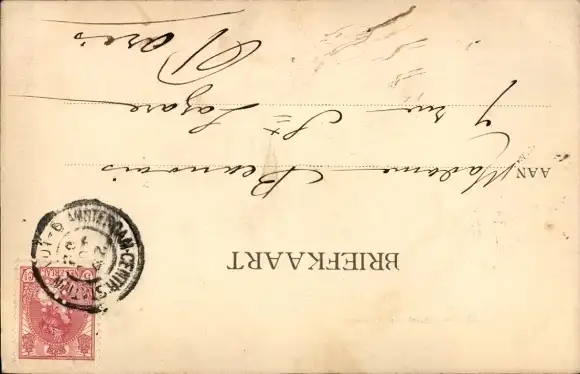 BRIEFKAART
AAN Madame
7 rue St Lazare
Paris
AMSTERDAM-CENTR.STATION